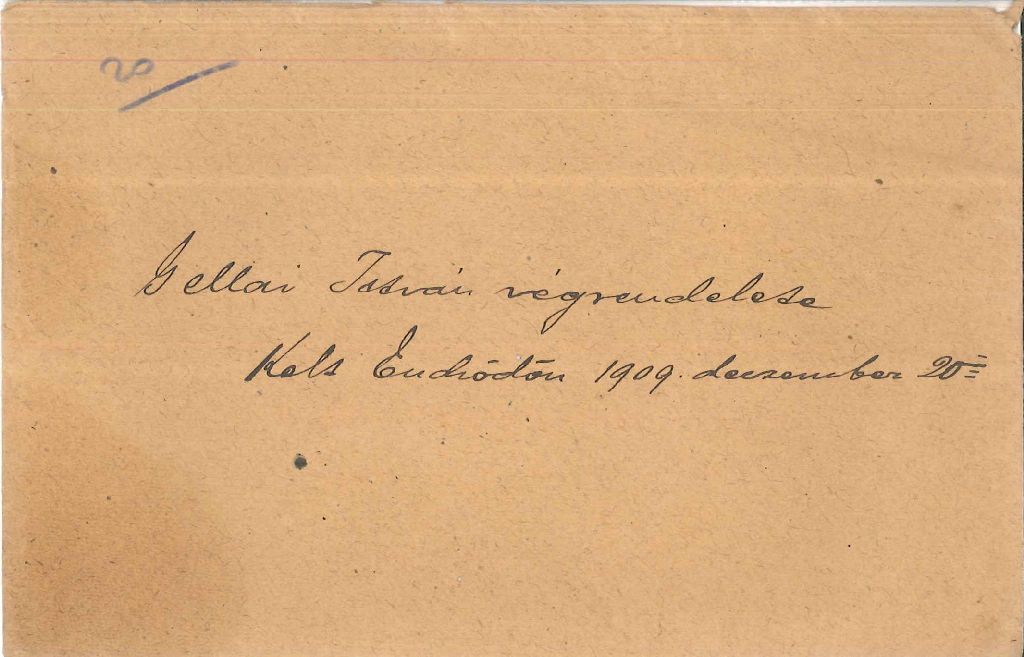 20
Gellai István végrendelete
Kelt Endrődön 1909. deczember 20=